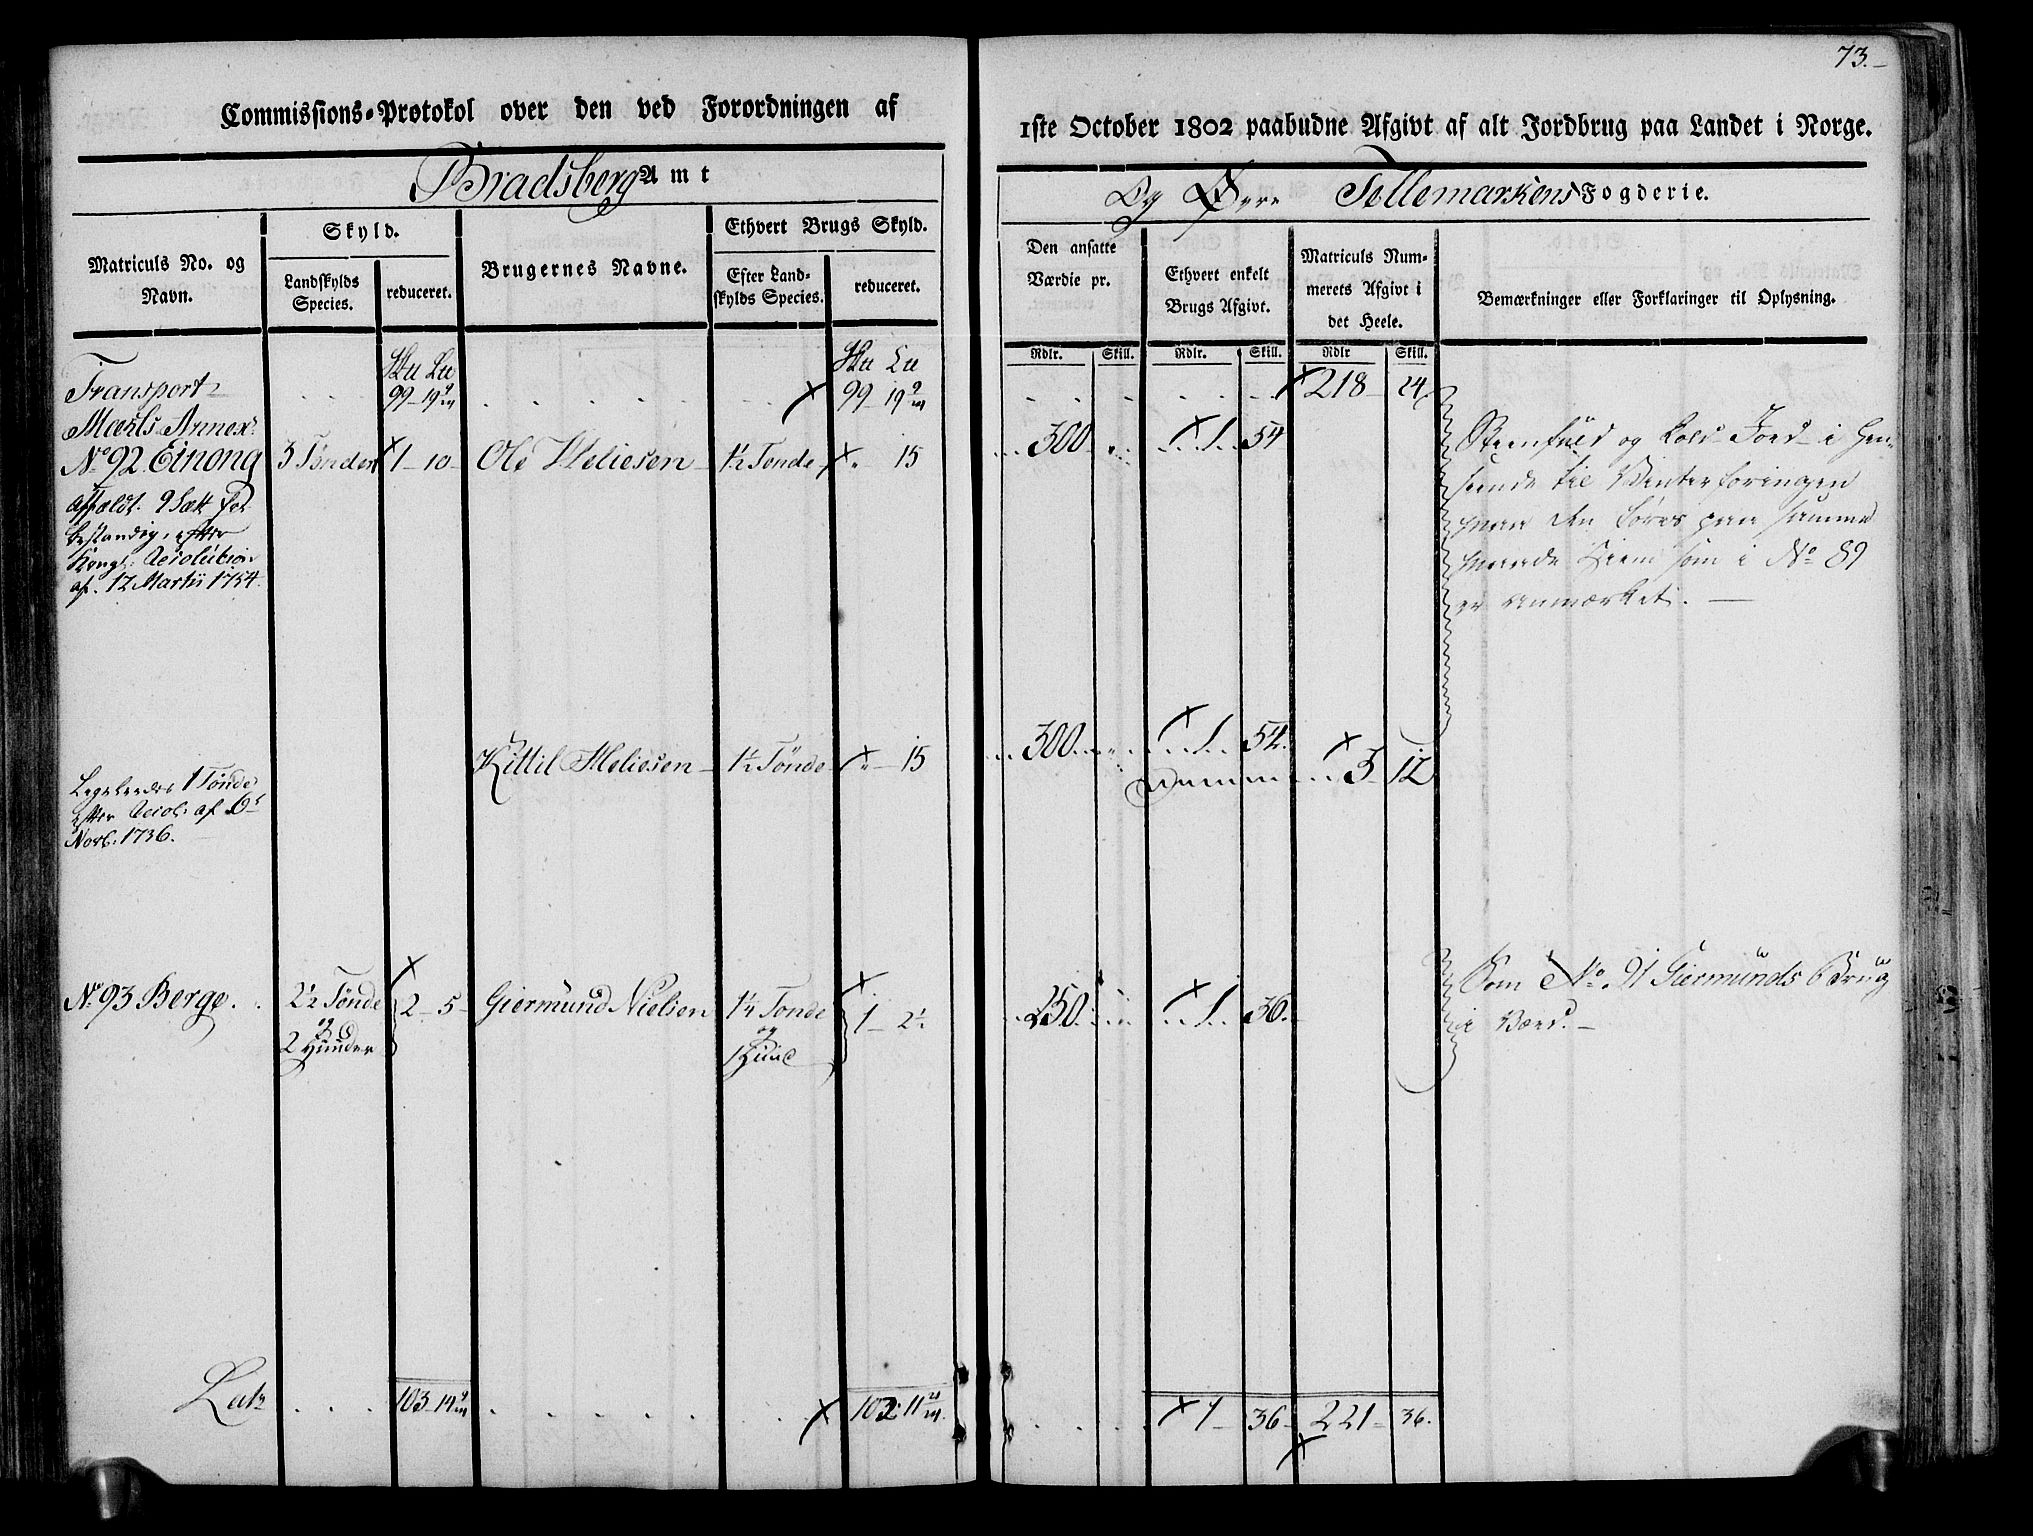 73.
Commissions-Protokol over den ved Forordningen af
1ste October 1802 paabudne Afgivt af alt Jordbrug paa Landet i Norge.
Bradsberg Amt
Og Øvre Tellemarkens Fogderie.
Matriculs No. og Navn.
Skyld.
Landskylds Species.
reduceret.
Brugernes Navne.
Ethvert Brugs Skyld.
Efter Landskylds Species.
reduceret.
Den ansatte Værdie pr.
Ethvert enkelt Brugs Afgivt.
Matriculs Nummerets Afgivt i det Heele.
Bemærkninger eller Forklaringer til Oplysning.
Rdlr. Skill. Rdlr. Skill. Rdlr Skill.
Transport 99 - 19 99 - 19 218 - 24
Annex
No 92 Einong 3 Tønder 1 - 10 - Ole 1½ Tønde 15 300 1 54
9 Sætt for
bestandig, efter
Kongl: Resolution
af. 12 Martii 1754.
Steenfuld og Kold Jord i Hen-
seende til Vinterforingen
maa den føres paa samme
maade hiem som i No 89
er anmærket. —
Kittil 1½ Tønde 15 300 1 54 3 12
1 Tønde
efter Resol: af
Novb: 1736.
No 93 Berge. 2½ Tønde og 2 Huuder 2 - 5 - Giermund Nielsen 1¼ Tønde og 1 Huud 1 - 2½ 250 1 30
Som No. 91 Giermunds Brug
i Værd. —
Lat: 103 - 14 102 - 11 36 - 221 - 36.